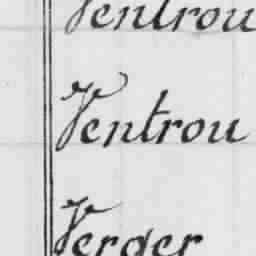 Ventrou
Ventrou
Verger